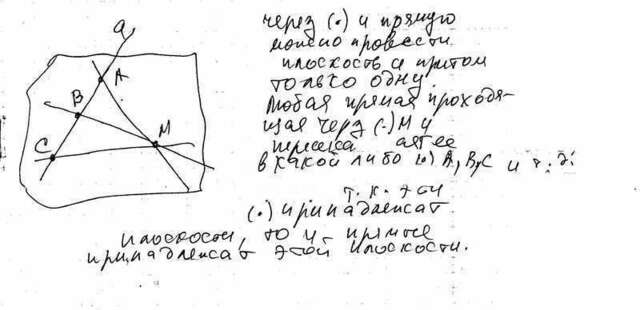 a
A
B
C
M
через (·) и прямую
можно провести
плоскость и притом
только одну.
Любая прямая проходя-
щая черз (·) M и
пересека ая ее
в какой либо (·) A, B, C и т. д.
т. к. эти
(·) принадлежат
плоскости, то и прямые
принадлежат этой плоскости.